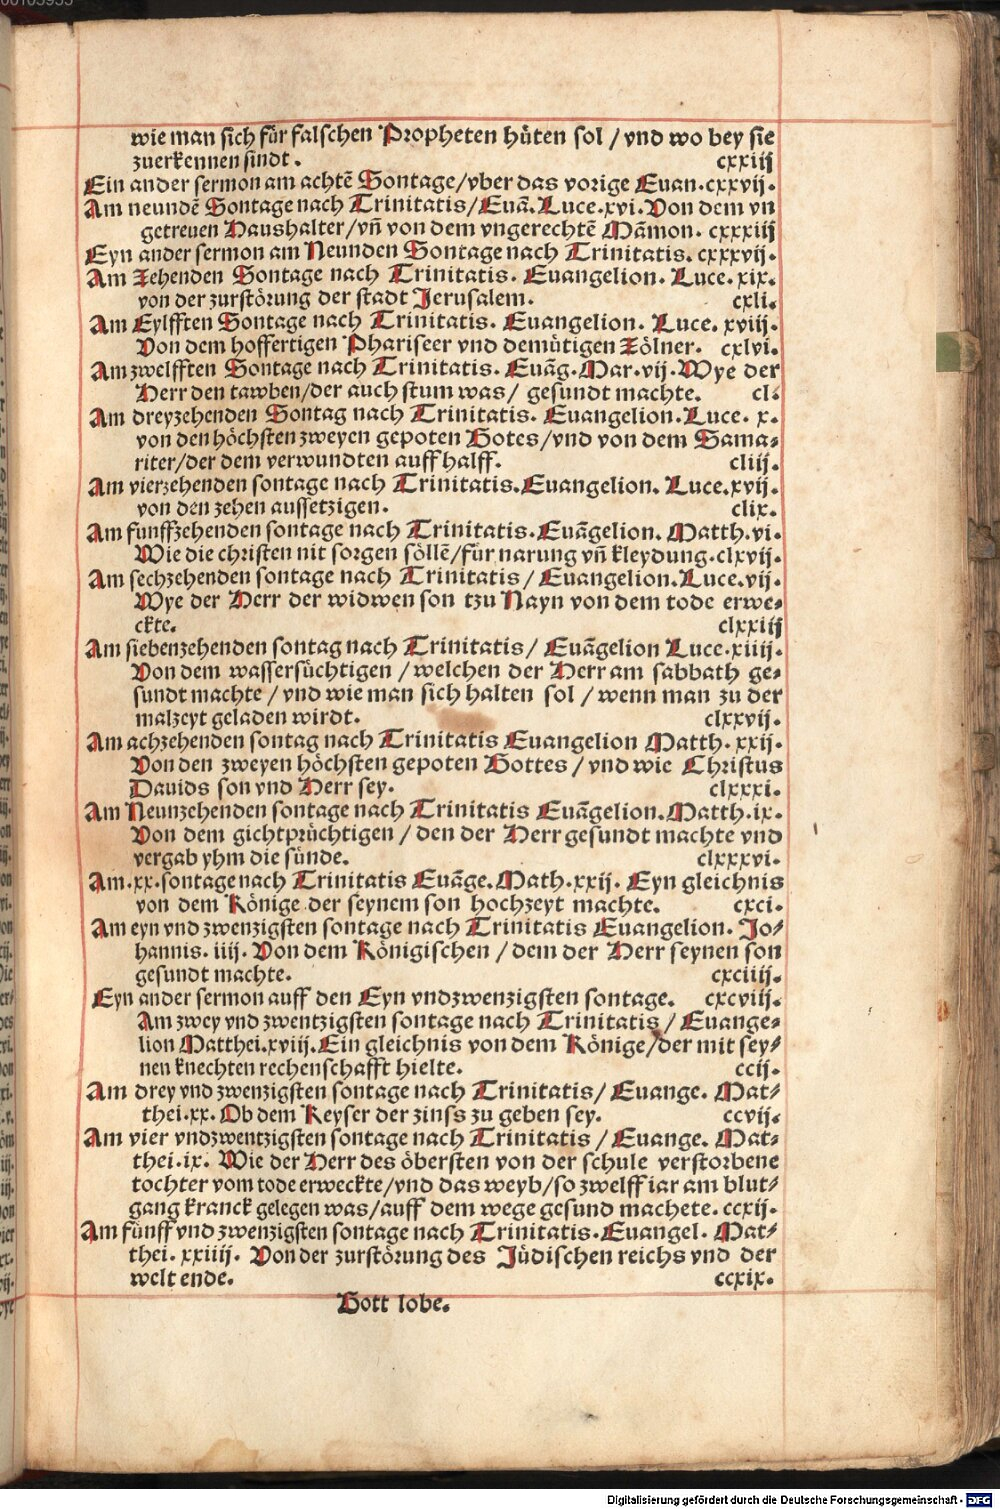 wie man sich für falschen Propheten hüten sol / vnd wo bey sie
zuerkennen sindt. cxxiij
Ein ander sermon am achtē Sontage/vber das vorige Euan.cxxvij.
Am neundē Sontage nach Trinitatis/Euā.Luce.xvi.Von dem vn
getreuen Haushalter/vn̄ von dem vngerechtē Māmon. cxxxiij
Eyn ander sermon am Neunden Sontage nach Trinitatis. cxxxvij.
Am Zehenden Sontage nach Trinitatis. Euangelion. Luce. xix.
von der zurstörung der stadt Jerusalem. cxli.
Am Eylfften Sontage nach Trinitatis. Euangelion. Luce. xviij.
Von dem hoffertigen Phariseer vnd demütigen Zölner. cxlvi.
Am zwelfften Sontage nach Trinitatis. Euāg. Mar.vij.Wye der
Herr den tawben/der auch stum was/ gesundt machte. cl.
Am dreyzehenden Sontag nach Trinitatis. Euangelion.Luce. x.
von den höchsten zweyen gepoten Gotes/vnd von dem Sama-
riter/der dem verwundten auff halff. cliij.
Am vierzehenden sontage nach Trinitatis.Euangelion. Luce.xvij.
von den zehen aussetzigen. clix.
Am funffzehenden sontage nach Trinitatis.Euāgelion. Matth.vi.
Wie die christen nit sorgen söllē/für narung vn̄ kleydung.clxvij.
Am sechzehenden sontage nach Trinitatis / Euangelion.Luce.vij.
Wye der Herr der widwen son tzu Nayn von dem tode erwe-
ckte. clxxiij
Am siebenzehenden sontag nach Trinitatis/ Euāgelion Luce.xiiij.
Von dem wassersüchtigen / welchen der Herr am sabbath ge-
sundt machte / vnd wie man sich halten sol / wenn man zu der
malzeyt geladen wirdt. clxxvij.
Am achzehenden sontag nach Trinitatis Euangelion Matth. xxij.
Von den zweyen höchsten gepoten Gottes / vnd wie Christus
Dauids son vnd Herr sey. clxxxi.
Am Neunzehenden sontage nach Trinitatis Euāgelion.Matth.ix.
Von dem gichtprüchtigen / den der Herr gesundt machte vnd
vergab yhm die sünde. clxxxvi.
Am.xx.sontage nach Trinitatis Euāge.Math.xxij. Eyn gleichnis
von dem Könige der seynem son hochzeyt machte. cxci.
Am eyn vnd zwenzigsten sontage nach Trinitatis Euangelion. Jo-
hannis. iiij. Von dem Königischen / dem der Herr seynen son
gesundt machte. cxciiij.
Eyn ander sermon auff den Eyn vndzwenzigsten sontage. cxcviij.
Am zwey vnd zwentzigsten sontage nach Trinitatis / Euange-
lion Matthei.xviij.Ein gleichnis von dem Könige/der mit sey-
nen knechten rechenschafft hielte. ccij.
Am drey vnd zwenzigsten sontage nach Trinitatis/ Euange. Mat-
thei.xx. Ob dem Keyser der zinss zu geben sey. ccvij.
Am vier vndzwentzigsten sontage nach Trinitatis / Euange. Mat-
thei.ix. Wie der Herr des öbersten von der schule verstorbene
tochter vom tode erweckte/vnd das weyb/so zwelff iar am blut-
gang kranck gelegen was/auff dem wege gesund machete. ccxij.
Am fünff vnd zwenzigsten sontage nach Trinitatis.Euangel. Mat-
thei. xxiiij. Von der zurstörung des Jüdischen reichs vnd der
welt ende. ccxix.
Gott lobe.
Digitalisierung gefördert durch die Deutsche Forschungsgemeinschaft - DFG